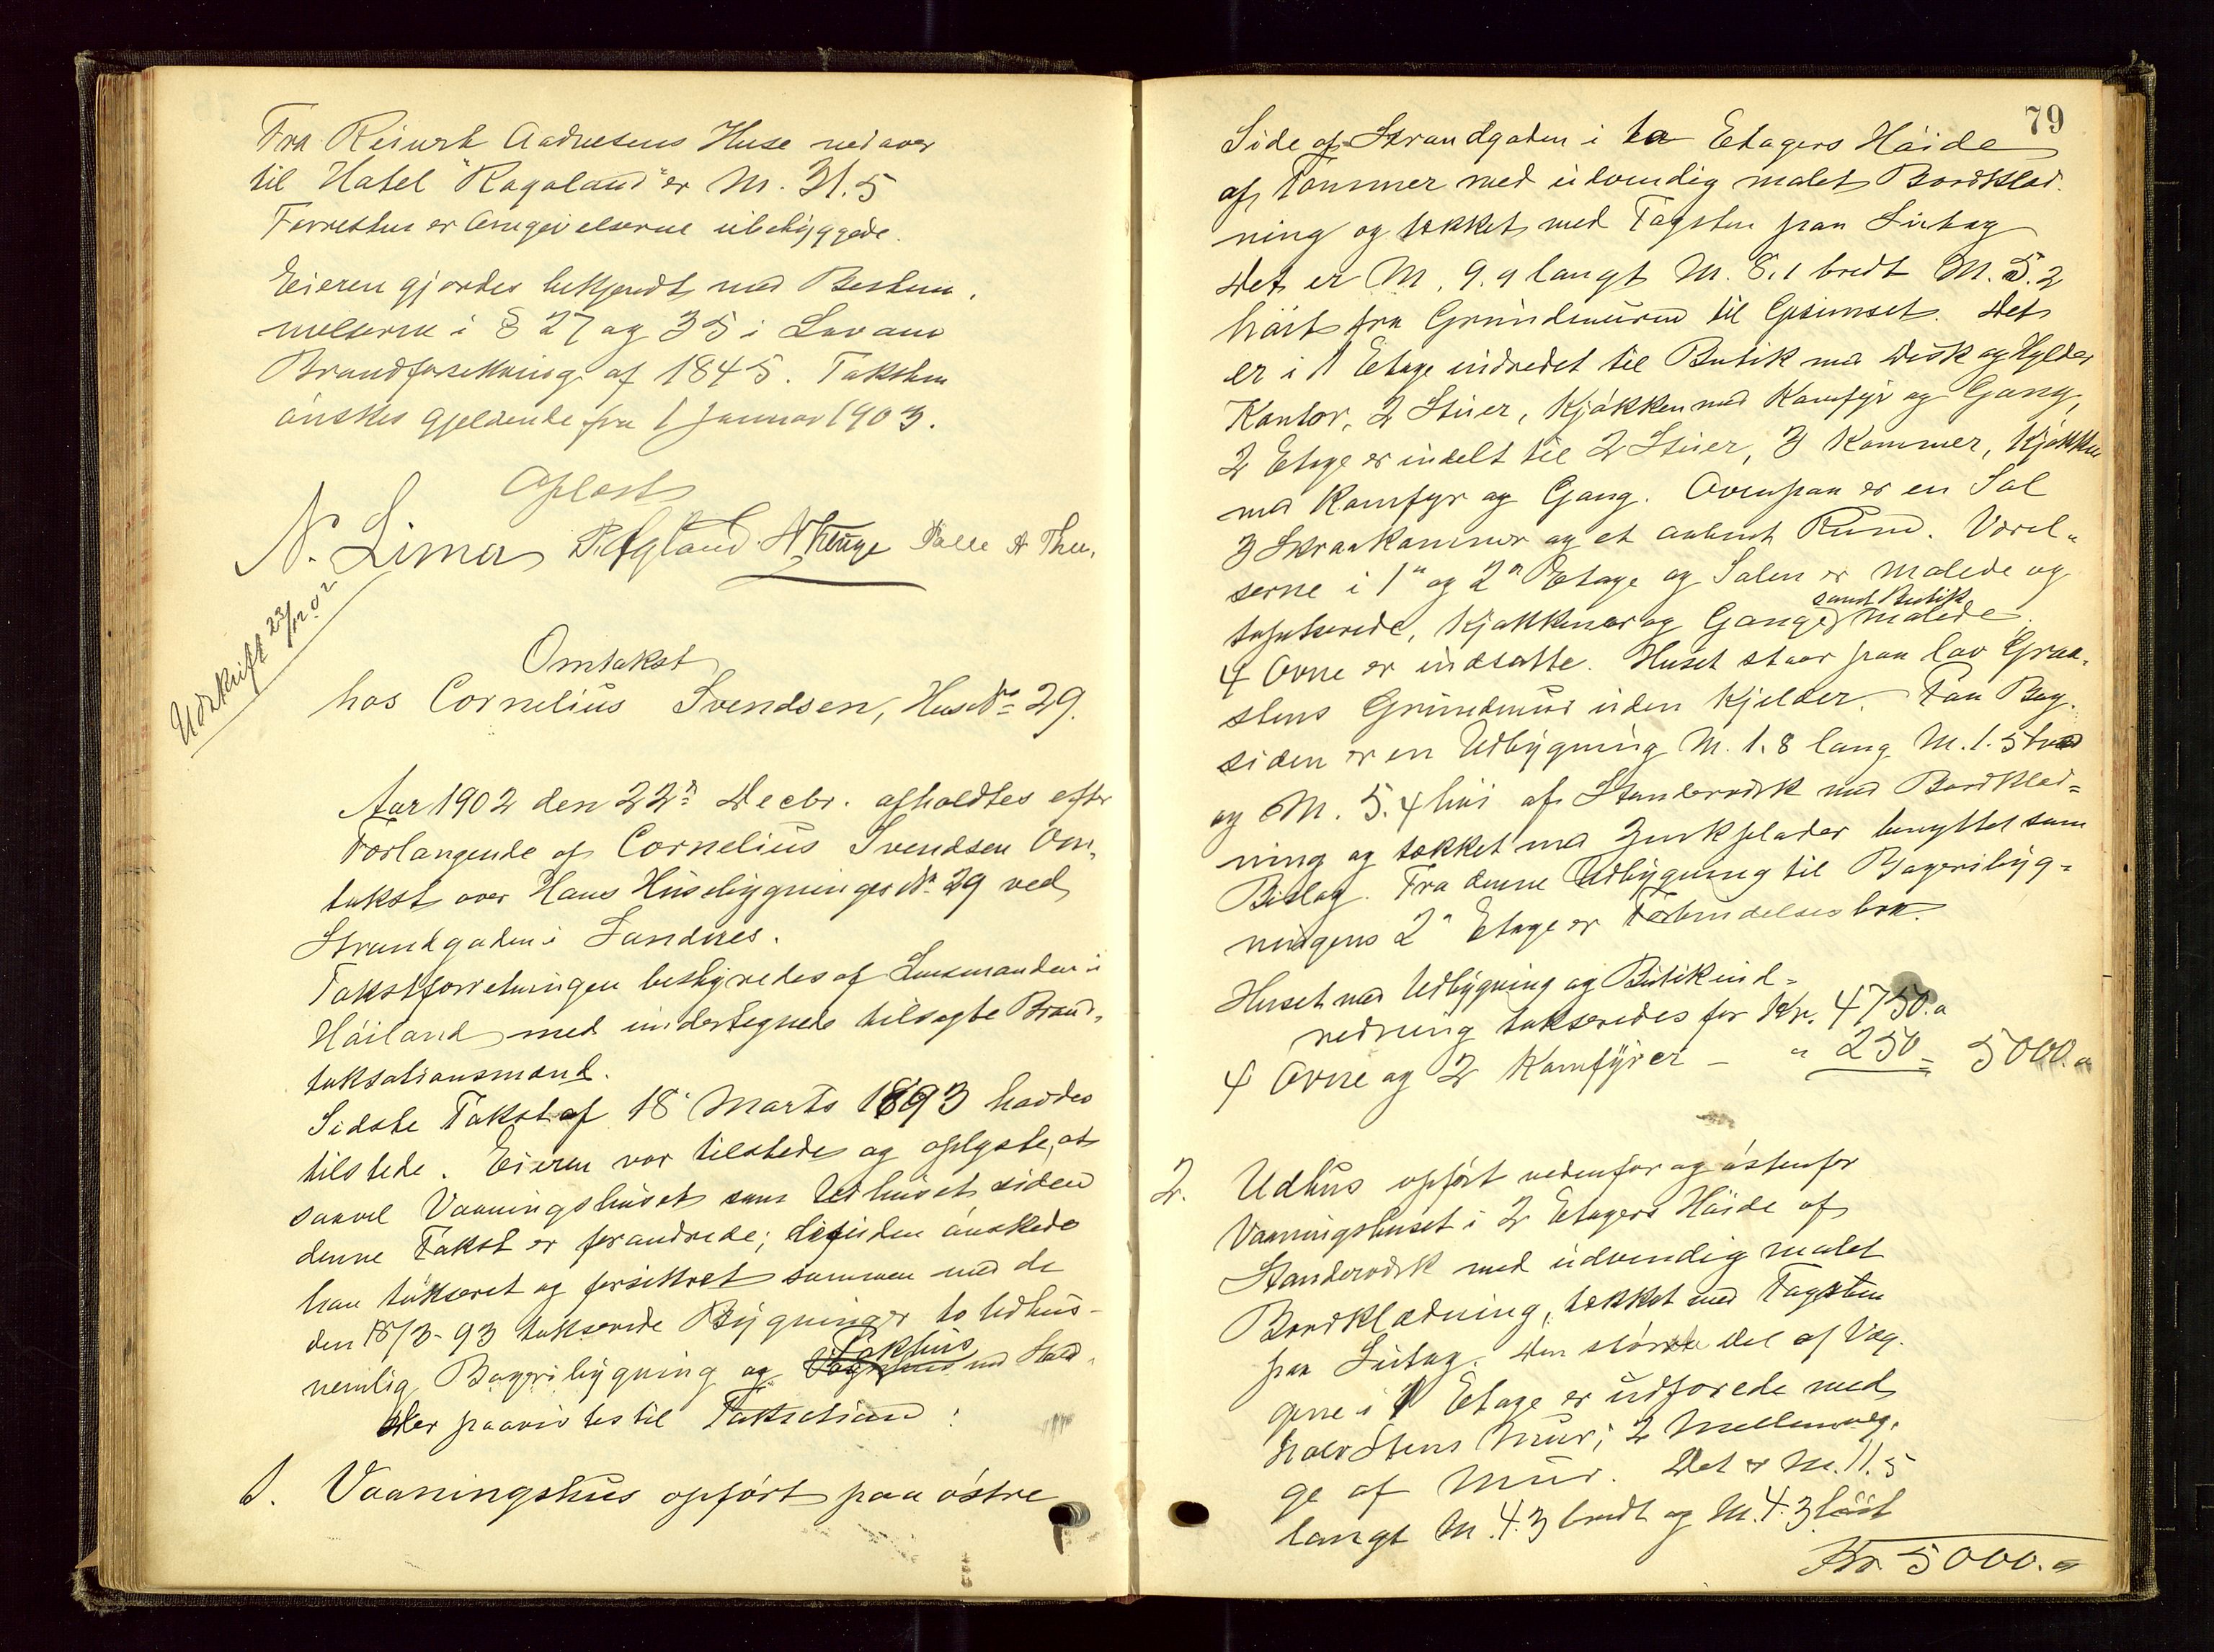 Fra Reinert Aadnesens Huse nedover
til Hotel "Rogaland" er M. 31.5
Forresten er Omgivelserne ubebyggede.
Eieren gjordes bekjendt med Bestem,
melserne i § 27 og 35 i Lov om
Brandforsikring af 1845. Taksten
önskes gjeldende fra 1 Januar 1903.
Oplæst
N. Lima
Udskrift 23/12.02
Omtakst
hos Cornelius Svendsen, Hus No 29.
Aar 1902 den 22n Decbr. afholdtes efter
Forlangende af Cornelius Svendsen Om,
takst over Hans Husebygninger No 29 ved
Strandgaden i Sandnes.
Takstforretningen bestyredes af Lensmanden i
Höiland med undertegnede tilsagte Brand,
taksationsmænd.
Sidste Takst af 18 Marts 1893 havdes
tilstede. Eieren var tilstede og oplyste, at
saavel Vaaningshuset som Udhuset siden
denne Takst er forandrede; desuden önskede
han takseret og forsikret sammen med de
den 18/3-93 takserede Bygninger to Udhus-
nemlig Bageribygning og Takhus med Stald.
Der paavistes til Taksation:
1. Vaaningshus opfört paa östre
79
Side af Strandgaden i to Etagers Höide
af Tömmer med udvendig malet Bordklæd.
ning og tækket med Tagsten paa Sutag
Det er M. 9.9 langt M. 8.1 bredt M. 5.2
höit fra Grundmuren til Gesimset. Det
er i 1 Etage indredet til Butik med Disk og Hylder
Kontor, 2 Stuer, Kjökken med Komfyr og Gang,
2 Etage er indelt til 2 Stuer, 3 Kammer, Kjökken
med Komfyr og Gang. Ovenpaa er en Sal
3 Skraakammer og et aabent Rum. Værel-
serne i 1n og 2n Etage og Salen er malede og
tapetserede, Kjökkener og Gange samt Butik malede.
4 Ovne er indsatte. Huset staar paa lav Graa,
stens Grundmur uden Kjelder. Paa Bag.
siden er en Udbygning M. 1.8 lang M. 1.5 bred
og M. 5.4 höi af Standerværk med Bordklæd=
ning og tækket med Zinkplader benyttet som
Bislag. Fra denne Udbygning til Bageribyg=
ningens 2n Etage er Forbindelsesbro.
Huset med Udbygning og Butikind=
redning takseredes for Kr. 4750.
4 Ovne og 2 Komfyrer - " 250 = 5000.
2. Udhus opfört nedenfor og östenfor
Vaaningshuset i 2 Etagers Höide af
Standerværk med udvendig malet
Bordklædning, tækket med Tagsten
paa Sutag. Den störste Del af Væg.
gene i 1 Etage er udforede med
halv Stens Mur; 2 Mellemvæg,
ge af Mur. Det er M. 11.5
langt M. 4.3 bredt og M. 4.3 höit
Kr. 5000.